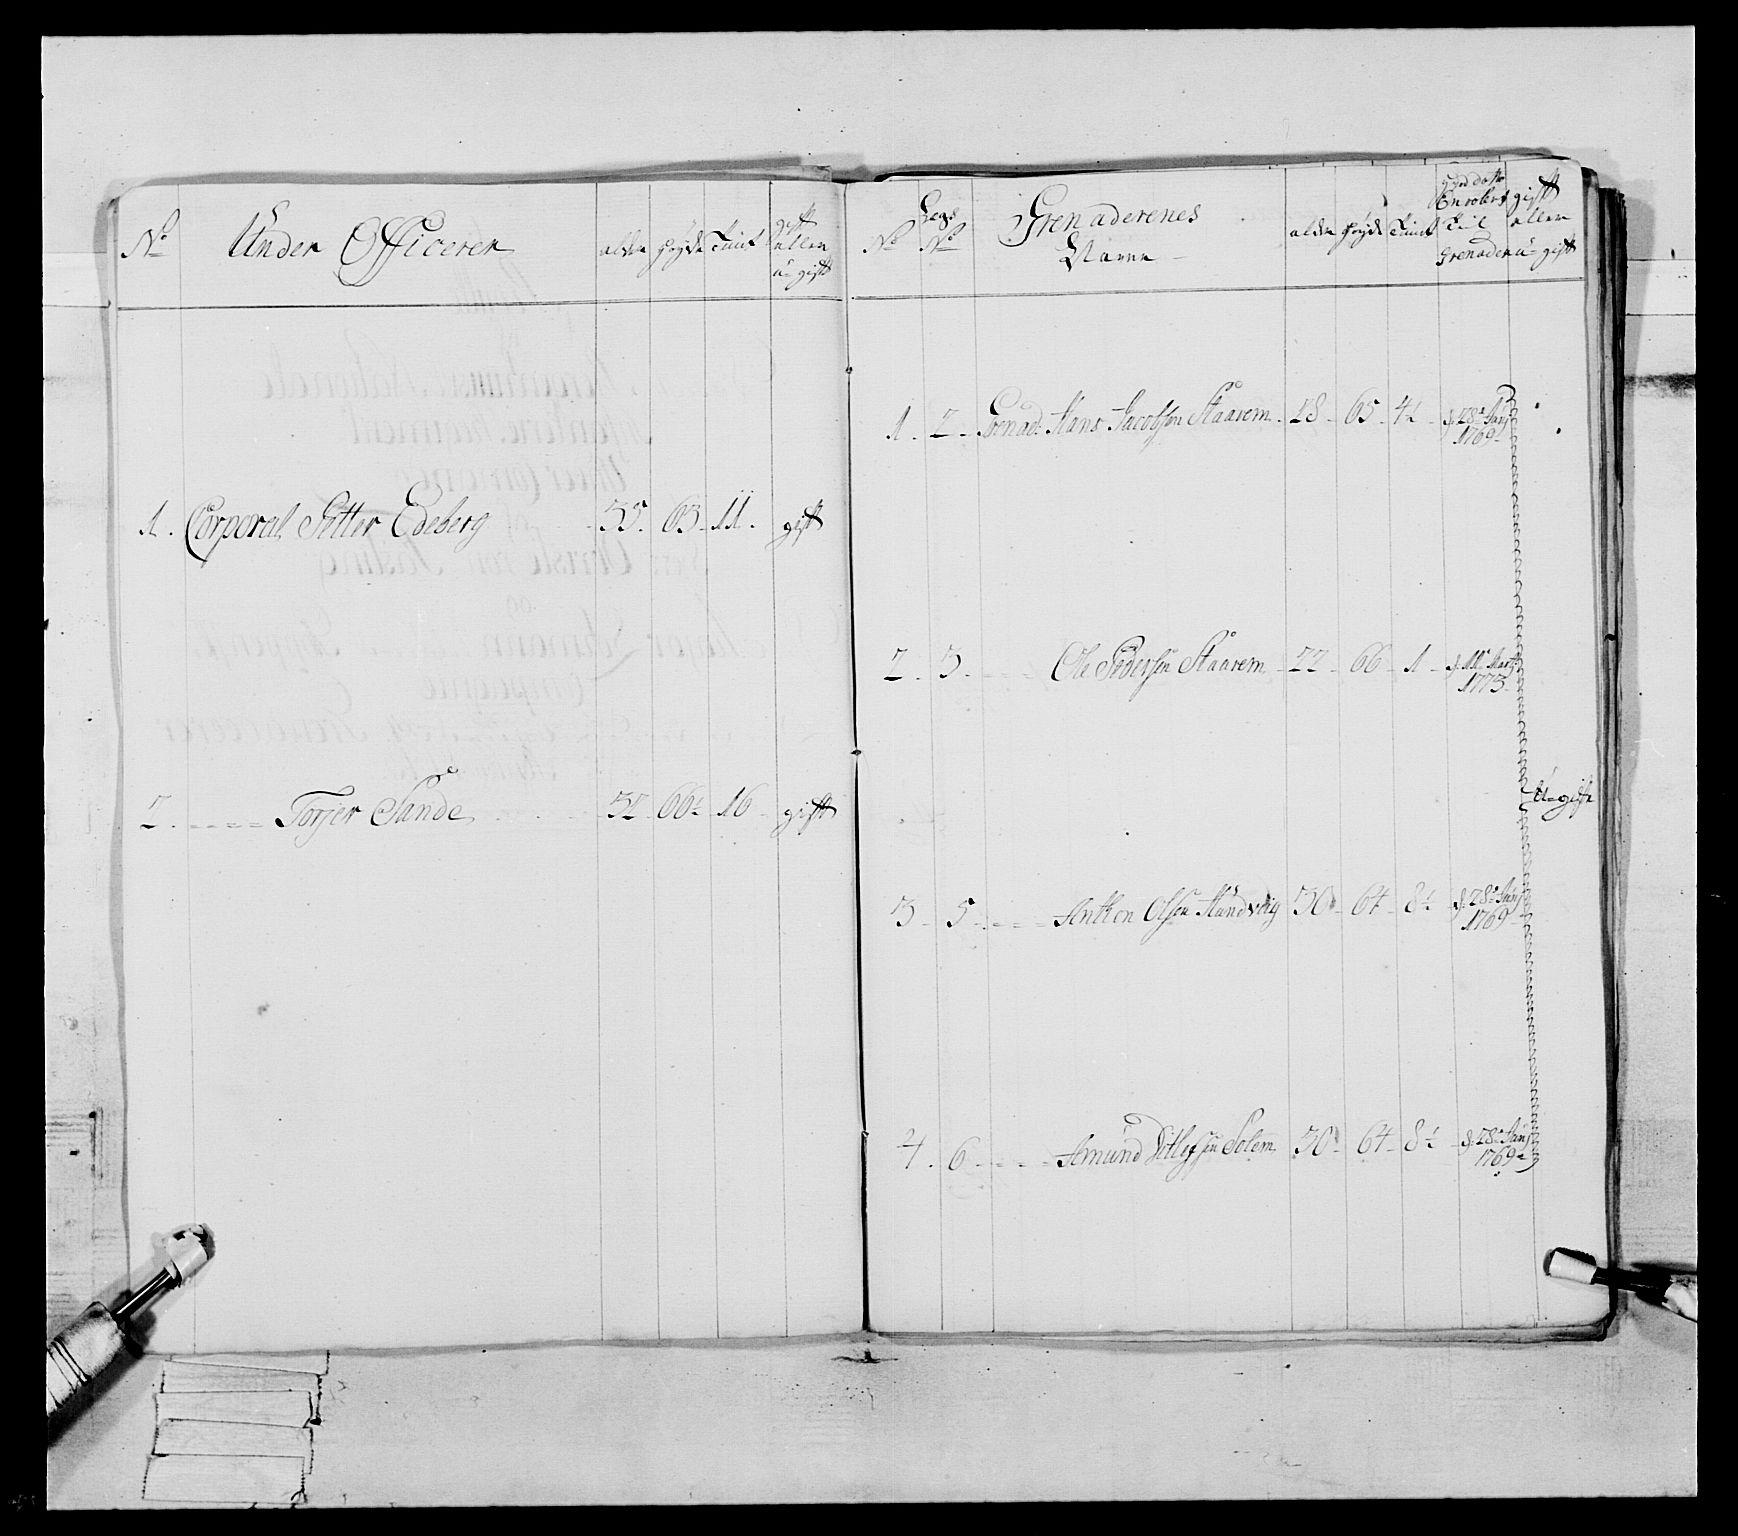 No Under Officerer alder høyde Tient gift eller u-gift
1. Corporal Petter Edeberg 35. 63. 11. gift
2. Torjer Sande 32. 66½ 16 gift
No Legs No Grenaderenes Navne alder høyde Tient Enrolert Til Grenader gift eller u-gift
1. 2. Grenad: Hans Jacobsen Staarem 28. 65. 4½ d: 28de Junj 1769
2. 3. Ole Pedersen Staarem 22 66 1 d: 11te Martj 1773
U-gift
3 5 Anthon Olsen Hundveig 30 64 8½ d: 28de Junj 1769
4. 6 Amund Ditlefsen Solem 30 64 8½ d: 28de Junj 1769